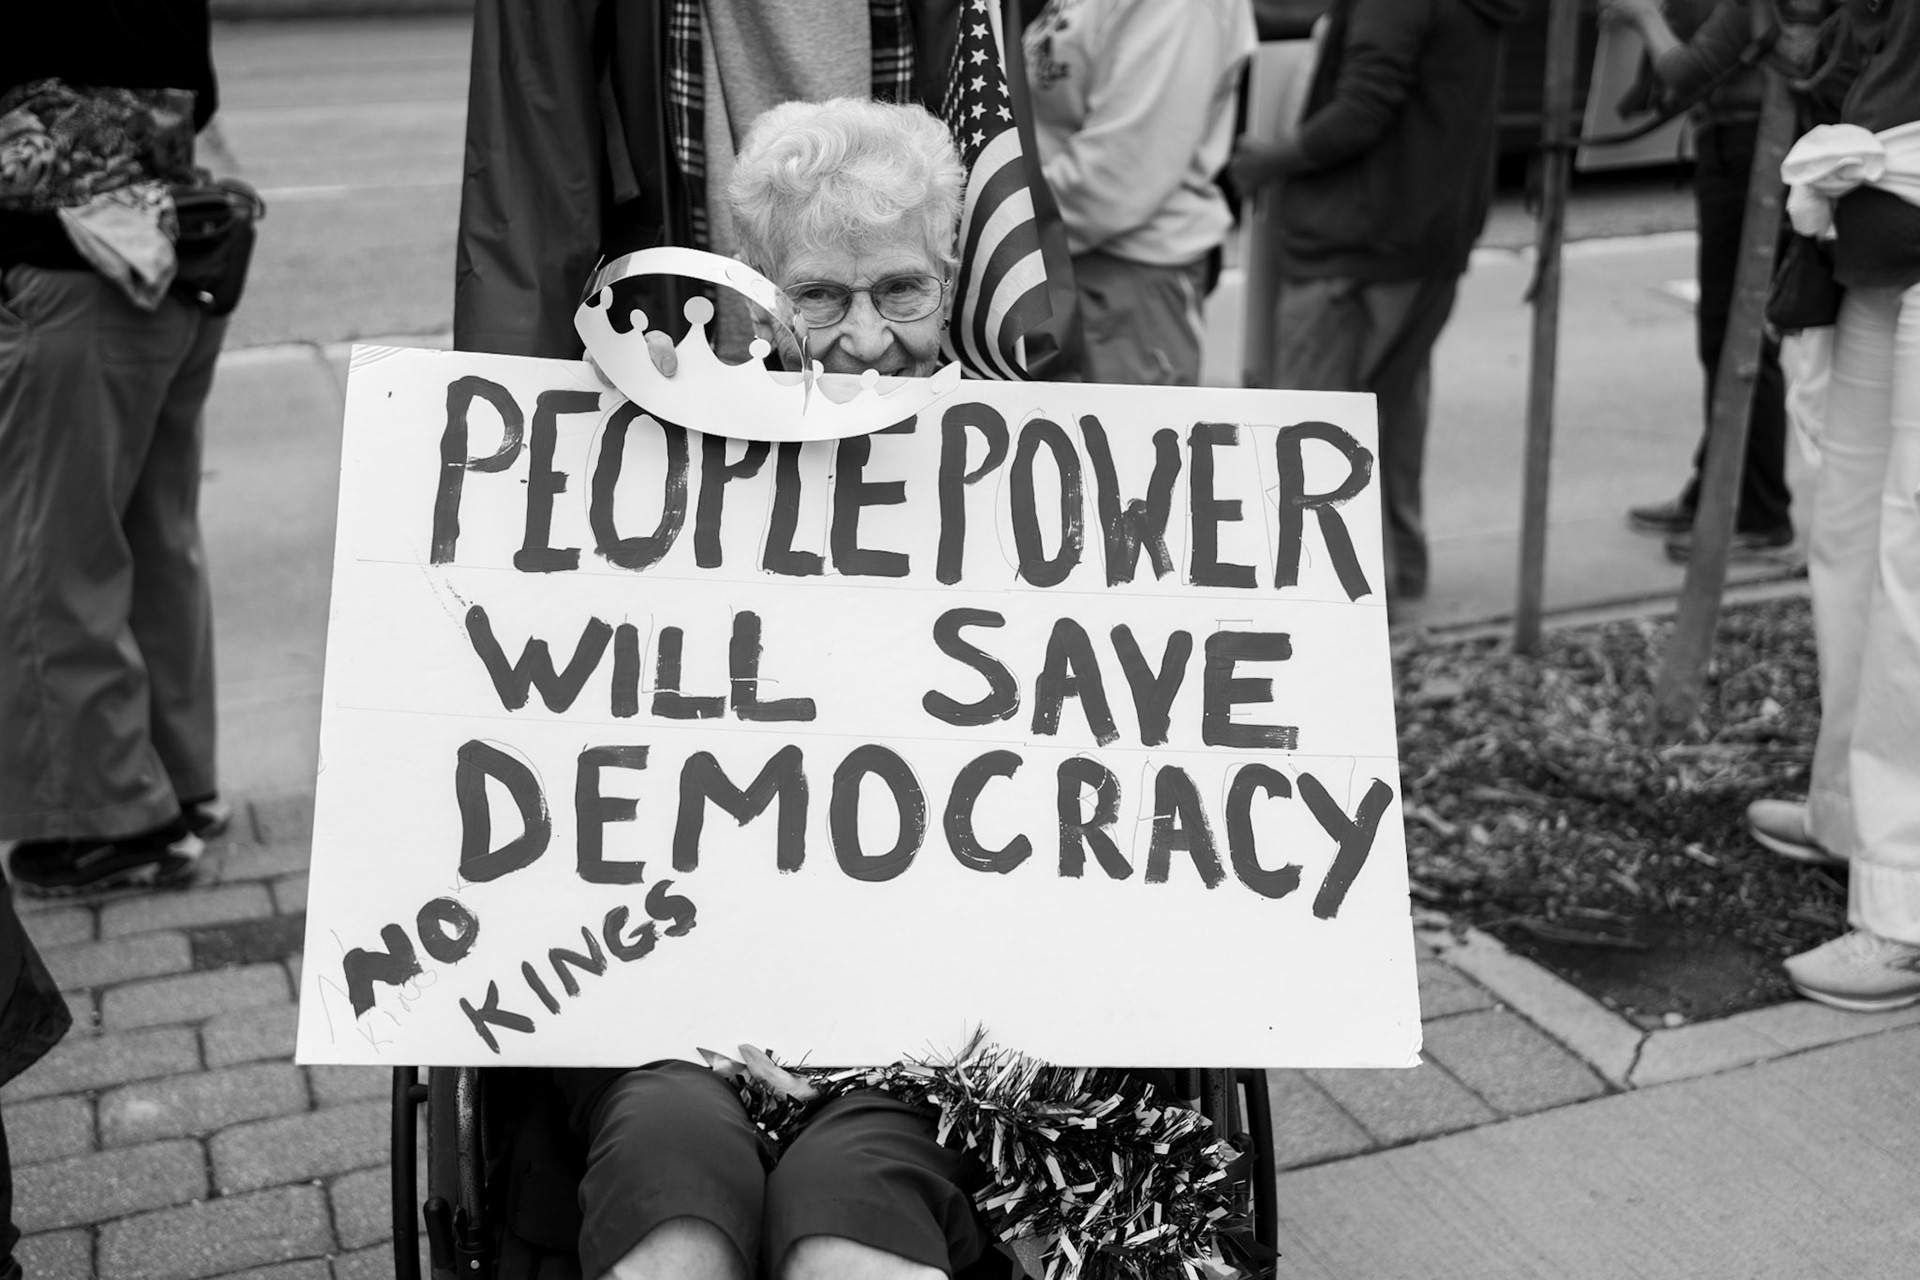 PEOPLE POWER
WILL SAVE
DEMOCRACY
NO
KINGS